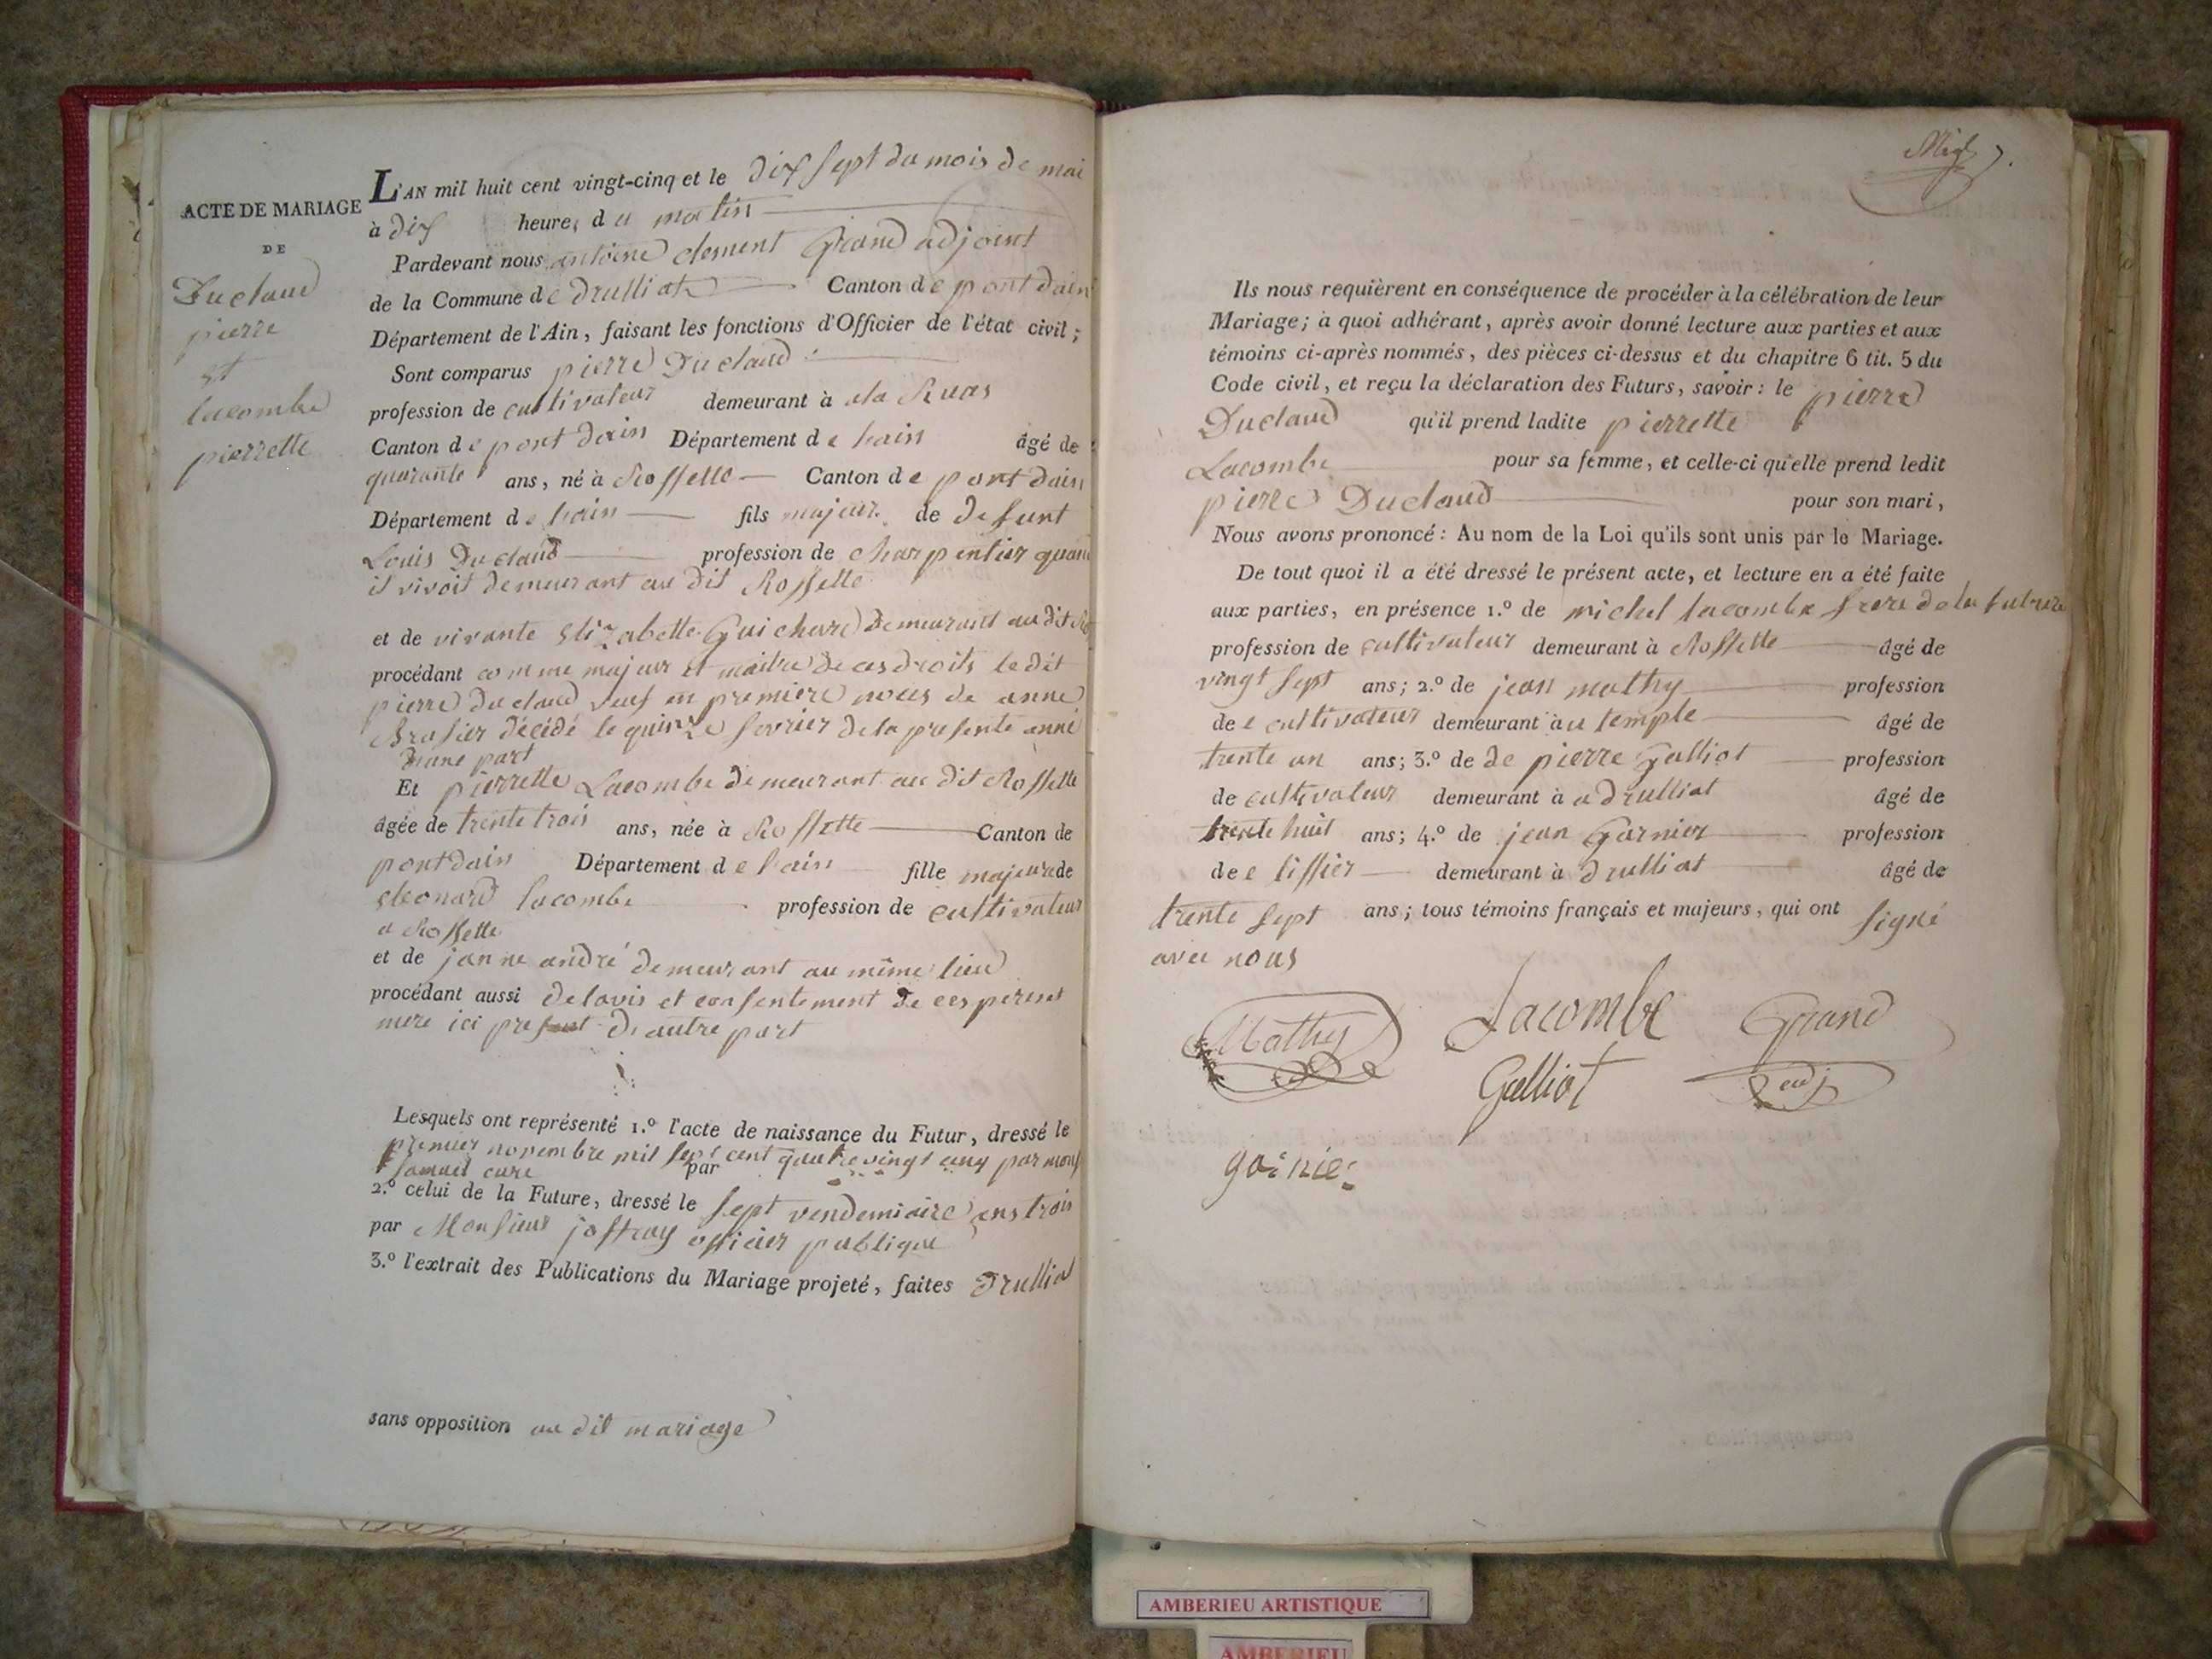 ACTE DE MARIAGE
DE
Duclaud
pierre
et
lacombe
pierrette
L'AN mil huit cent vingt-cinq et le dix sept du mois de mai
à dix heures du matin
Pardevant nous antoine clement Grand adjoint
de la Commune de druillat Canton de pont dain
Département de l'Ain, faisant les fonctions d'Officier de l'état civil;
Sont comparus pierre Duclaud
profession de cultivateur demeurant à la Ruas
Canton de pont dain Département de lain âgé de
quarante ans, né à Rossette Canton de pont dain
Département de lain fils majeur de defunt
Louis Duclaud profession de charpentier quand
il vivoit demeurant au dit Rossette
et de vivante Elizabette Guichard demeurant au dit Ro
procédant comme majeur et maitre de ces droits le dit
pierre duclaud veuf en premiere noces de anne
Brasier décédé le quinze fevrier de la presente anné
d'une part
Et pierrette Lacombe demeurant au dit Rossette
âgée de trente trois ans, née à Rossette Canton de
pont dain Département de lain fille majeure de
Leonard lacombe profession de cultivateur
a Rossette
et de janne andré demeurant au même lieu
procédant aussi de lavis et consentement de ces per et
mere ici present d'autre part
Lesquels ont représenté 1.º l'acte de naissance du Futur, dressé le
premier novembre mil sept cent quatre vingt cinq par mons
samuel curé par
2.º celui de la Future, dressé le sept vendemiaire ans trois
par Monsieur joffray officier publique
3.º l'extrait des Publications du Mariage projeté, faites Druillat
sans opposition au dit mariage
Ils nous requièrent en conséquence de procéder à la célébration de leur
Mariage; à quoi adhérant, après avoir donné lecture aux parties et aux
témoins ci-après nommés, des pièces ci-dessus et du chapitre 6 tit. 5 du
Code civil, et reçu la déclaration des Futurs, savoir: le pierre
Duclaud qu'il prend ladite pierrette
Lacombe pour sa femme, et celle-ci qu'elle prend ledit
pierre Duclaud pour son mari,
Nous avons prononcé: Au nom de la Loi qu'ils sont unis par le Mariage.
De tout quoi il a été dressé le présent acte, et lecture en a été faite
aux parties, en présence 1.º de michel lacombe frere de la future
profession de cultivateur demeurant à Rossette âgé de
vingt sept ans; 2.º de jean mathy profession
de cultivateur demeurant au temple âgé de
trente un ans; 3.º de de pierre Galliot profession
de cultivateur demeurant à a druillat âgé de
trente huit ans; 4.º de jean Garnier profession
de tissier demeurant à druillat âgé de
trente sept ans; tous témoins français et majeurs, qui ont signé
avec nous
Mathy Lacombe Grand
Galliot adj
garnier
AMBERIEU ARTISTIQUE
AMBERIEU